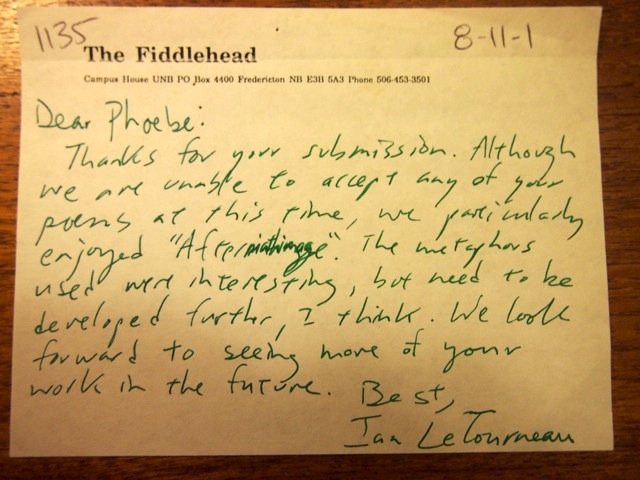 1135
8-11-1
The Fiddlehead
Campus House UNB PO Box 4400 Fredericton NB E3B 5A3 Phone 506-453-3501
Dear Phoebe:
Thanks for your submission. Although
we are unable to accept any of your
poems at this time, we particularly
enjoyed "After ". The metaphors
used were interesting, but need to be
developed further, I think. We look
forward to seeing more of your
work in the future. Best,
Ian LeTourneau